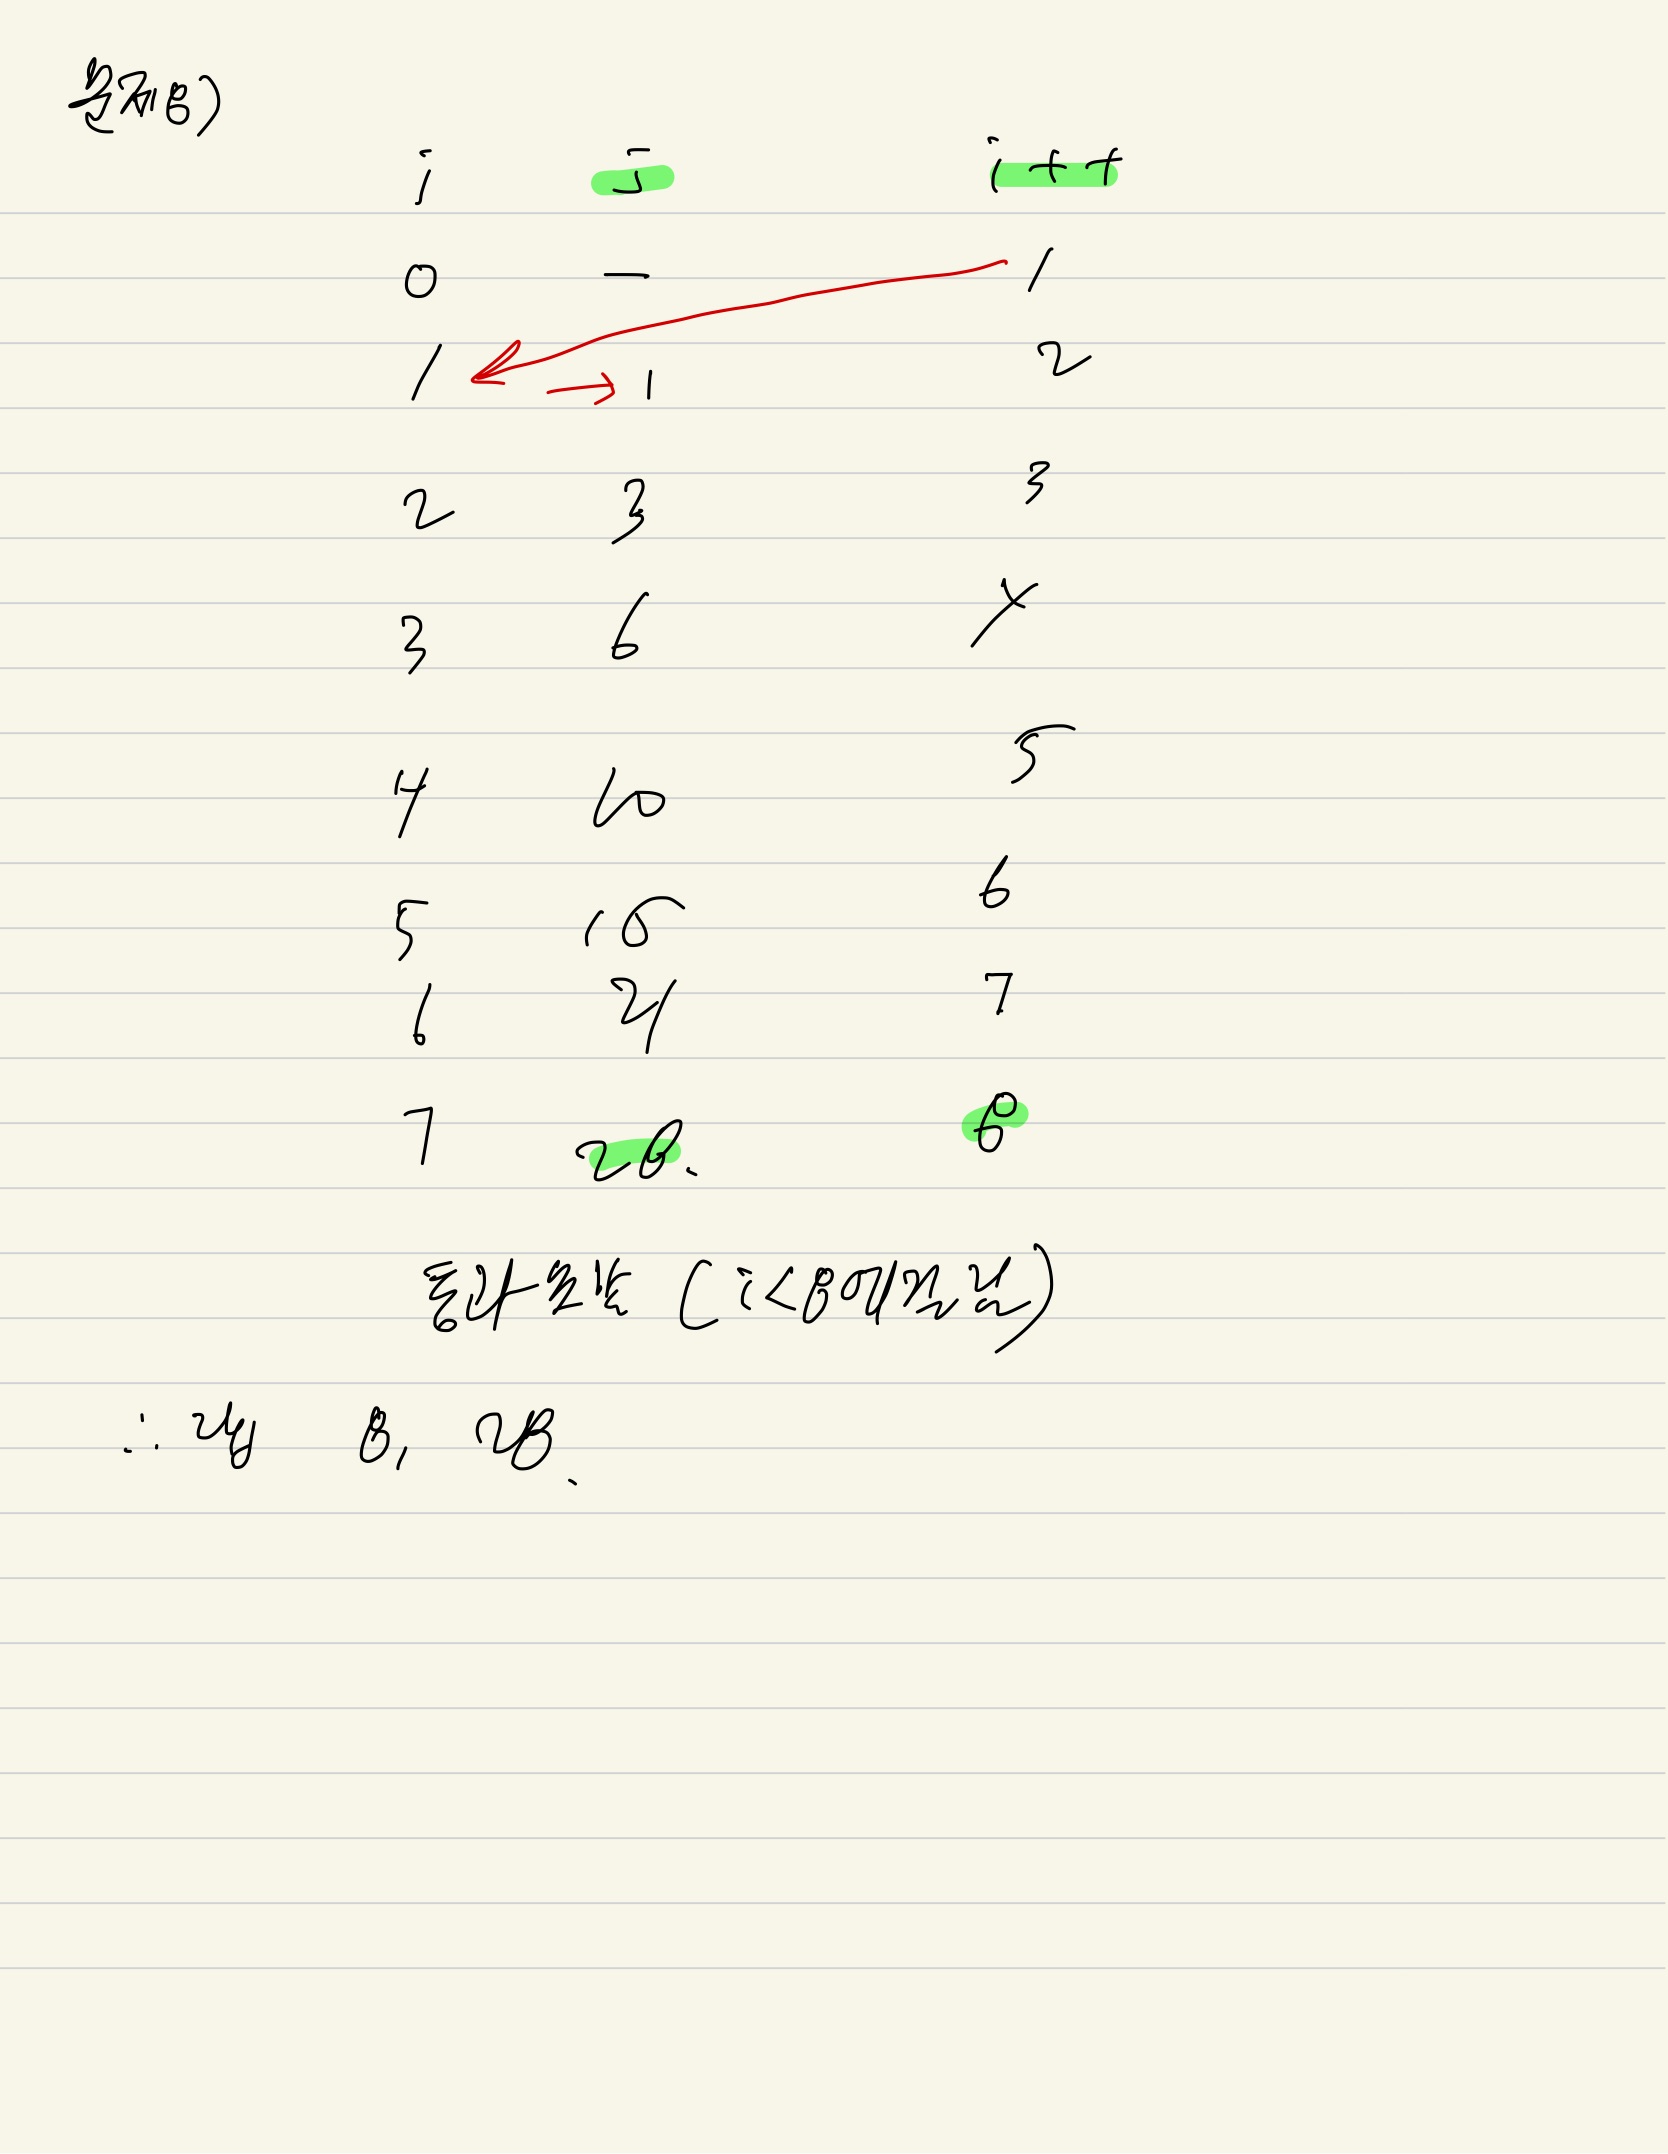 문제8)
i j i++
0 - 1
1 → 1 2
2 3 3
3 6 4
4 10 5
5 15 6
6 21 7
7 28. 8
통과 못함 (i<8이기 때문)
∴ 8, 28.